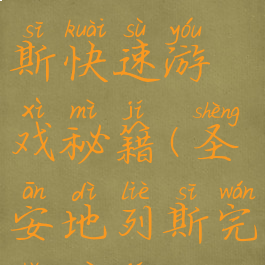 sī kuài sù yóu
斯快速游
xì mì jí shèng
戏秘籍(圣
ān dì liè sī wán
安地列斯完